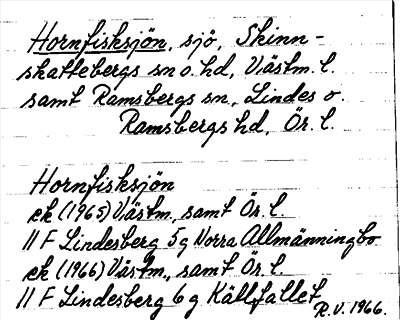 Hornfisksjön, sjö, Skinn-
skattebergs sn o. hd, Västm. l.
samt Ramsbergs sn, Lindes o.
Ramsbergs hd, Ör. l.
Hornfisksjön
ek (1965) Västm., samt Ör. l.
11 F Lindesberg 5g Norra Allmänningbo
ek (1966) Västm., samt Ör. l.
11 F Lindesberg 6g Källfallet
R.V. 1966.